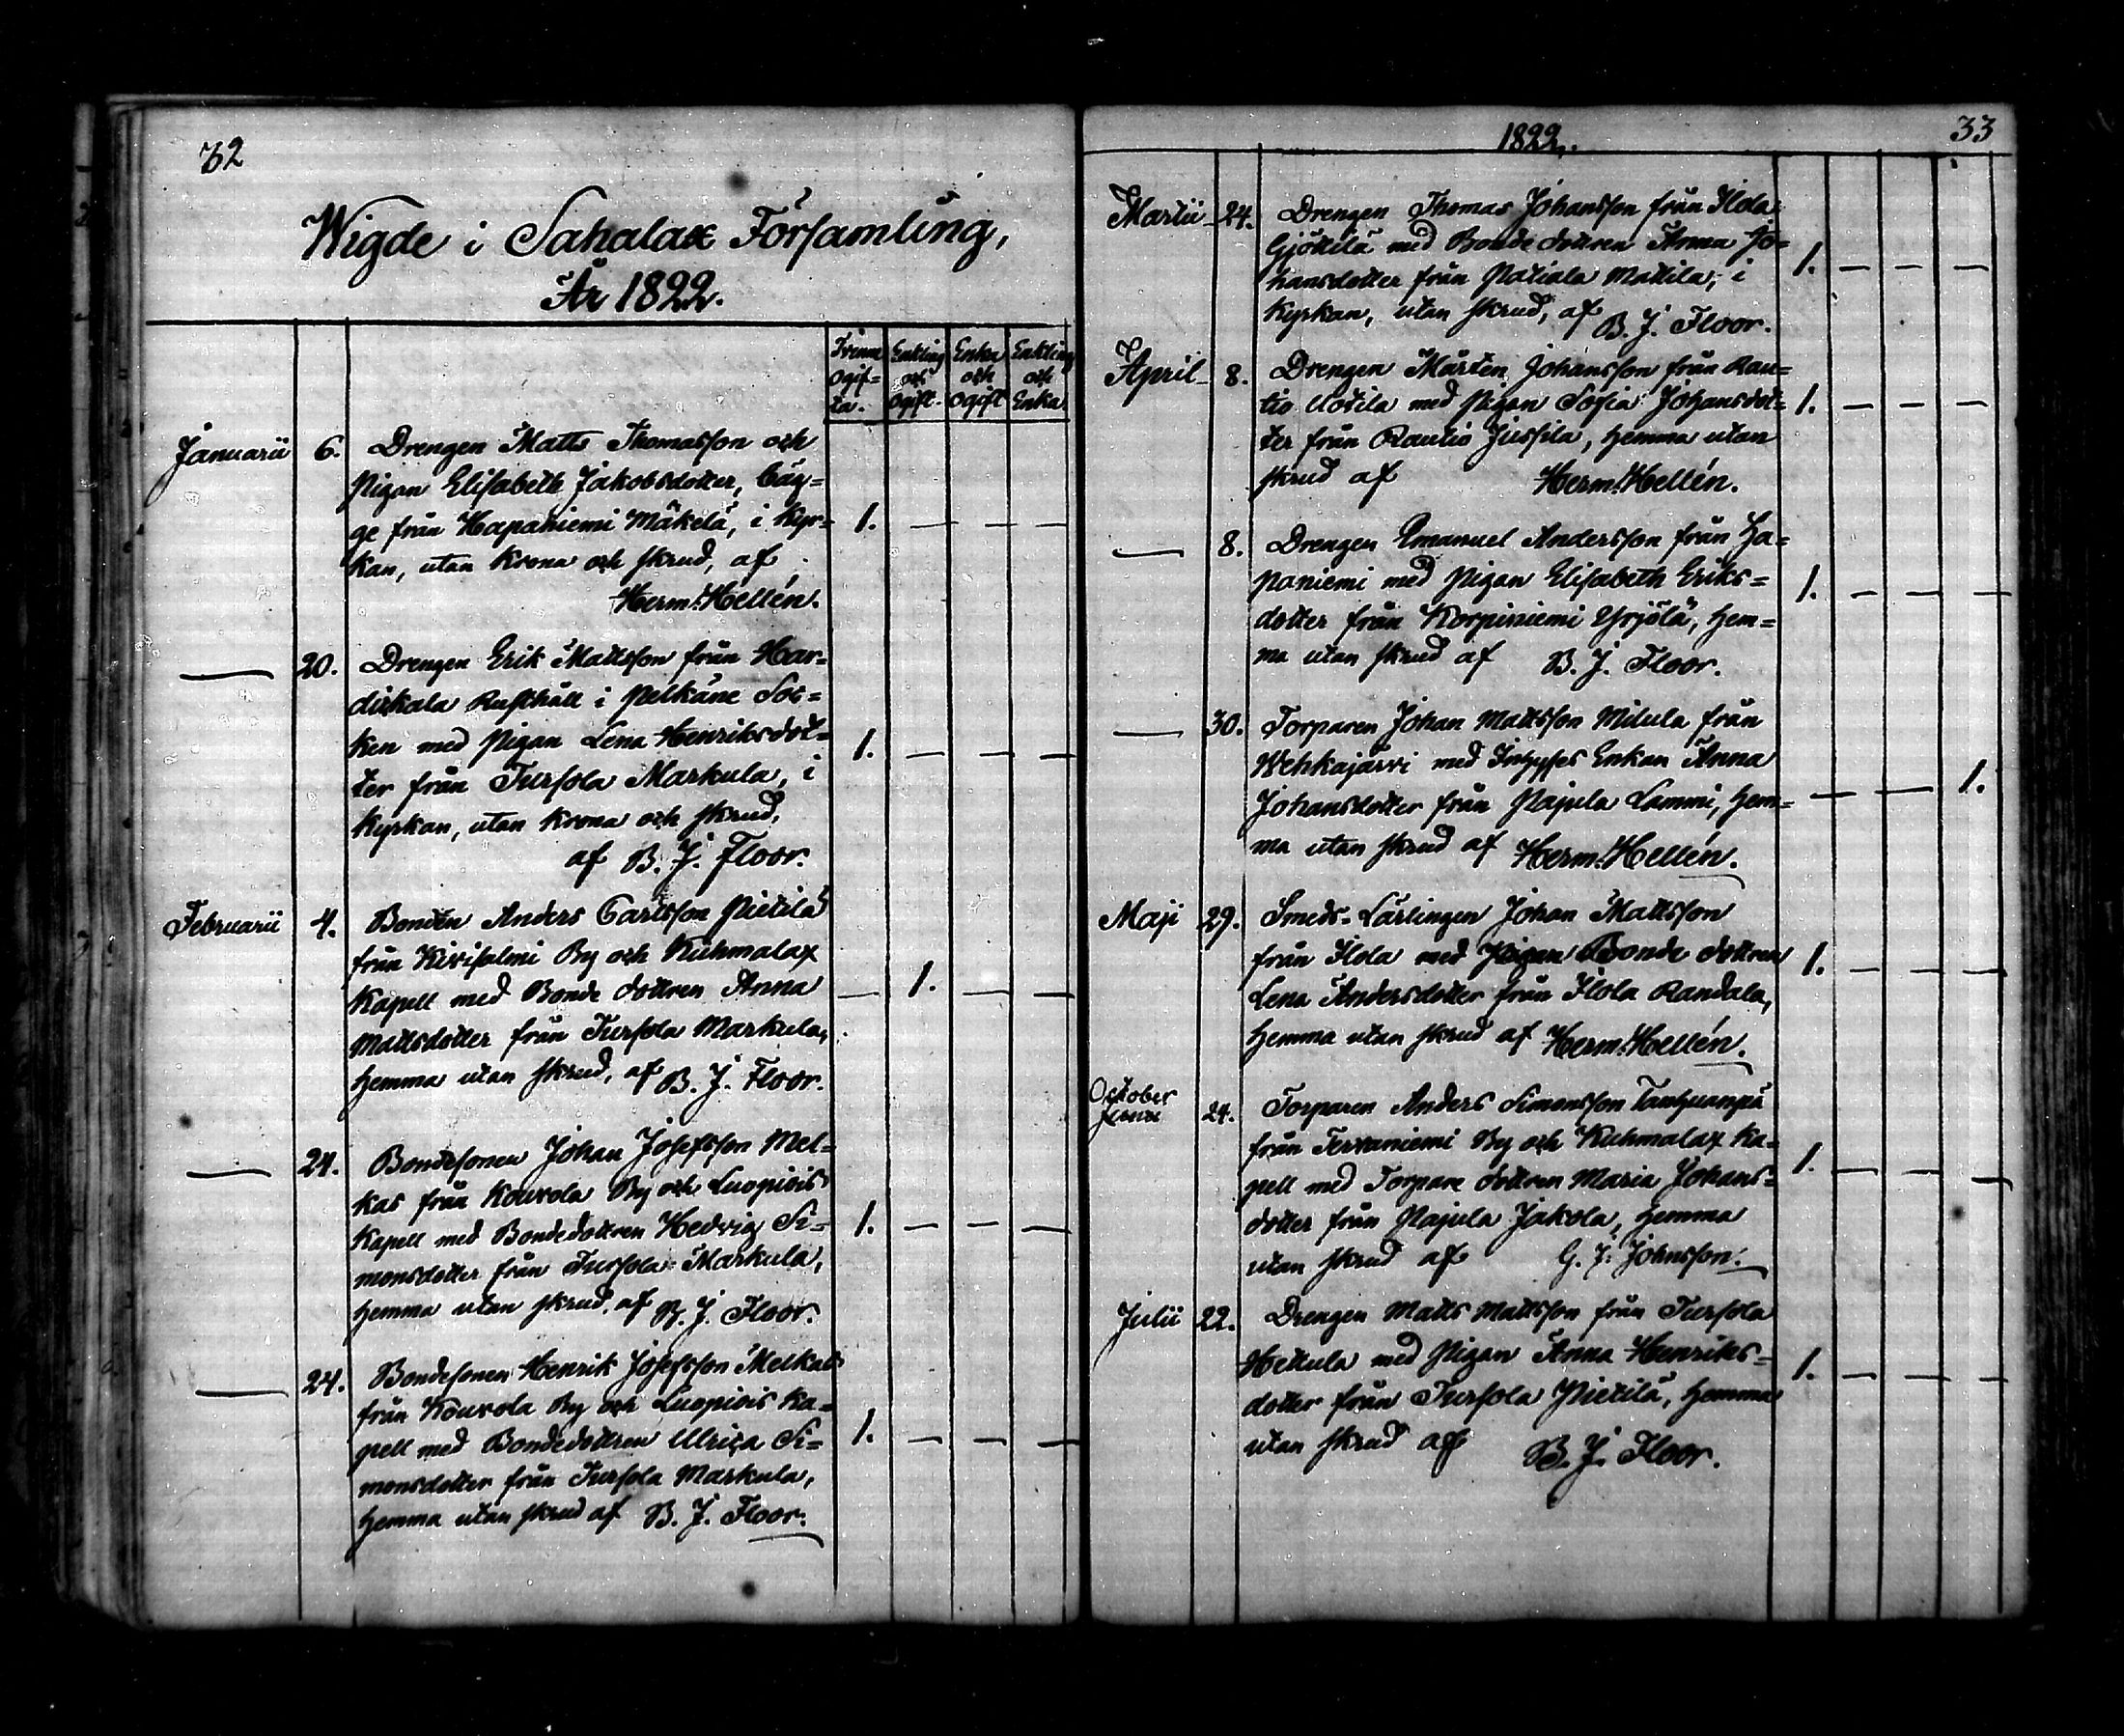 32
Wigde i Sahalax Församling,
År 1822.
Tvenne Ogif=ta.
Enkling och Ogift.
Enka och Ogift
Enkling och Enka
Januarii 6. Drengen Matts Thomasson och
Pigan Elisabeth Jakobsdotter, bäg=
ge från Hapaniemi Mäkelä, i Kyr= 1. — — —
kan, utan Krona och skrud, af
Herm. Hellén.
— 20. Drengen Erik Mattsson från Har=
diskala Rusthåll i Pelkäne Soc=
ken med Pigan Lena Henriksdot= 1. — — —
ter från Tursola Markula, i
Kyrkan, utan Krona och skrud,
af B. J. Floor.
Februarii 4. Bonden Anders Carlsson Pietilä
från Kirisalmi By och Kuhmalax
Kapell med Bonde dottren Anna — 1. — —
Mattsdotter från Tursola Markula,
hemma utan skrud, af B. J. Floor.
— 24. Bondesonen Johan Josefsson Mel=
kas från Kouvola By och Luopiois
Kapell med Bondedottren Hedvig Si= 1. — — —
monsdotter från Tursola Markula,
hemma utan skrud, af B. J. Floor.
— 24. Bondesonen Henrik Josefsson Melkas
från Kouvola By och Luopiois Ka=
pell med Bondedottren Ulrica Si= 1. — — —
monsdotter från Tursola Markula,
hemma utan skrud af B. J. Floor.
1822. 33
Martii 24. Drengen Thomas Johansson från Ilola
Gjöttilä med Bonde dottren Anna Jo=
hansdotter från Patiala Mattila, i 1. — — —
Kyrkan, utan skrud, af B. J. Floor.
April 8. Drengen Mårten Johansson från Rau=
tio Uotila med Pigan Sofia Johansdot= 1. — — —
ter från Rautio Jussila, hemma utan
skrud af Herm. Hellén.
— 8. Drengen Emanuel Andersson från Ha=
paniemi med Pigan Elisabeth Eriks= 1. — — —
dotter från Korpiniemi Yrjölä, hem=
ma utan skrud af B. J. Floor.
— 30. Torparen Johan Mattsson Milula från
Wehkajärvi med Inhyses Enkan Anna
Johansdotter från Pajula Lammi, hem= — — 1.
ma utan skrud af Herm. Hellén.
Maji 29. Smeds-Lärlingen Johan Mattsson
från Ilola med Pigan Bonde dottren 1. — — —
Lena Andersdotter från Ilola Randala,
hemma utan skrud af Herm. Hellén.
October 24. Torparen Anders Simonsson
från Tervaniemi By och Kuhmalax Ka=
pell med Torpare dottren Maria Johans= 1. — — —
dotter från Pajula Jakola, hemma
utan skrud af G. J. Johnsson.
Julii 22. Drengen Matts Mattsson från Tursola
Hettula med Pigan Anna Henriks= 1. — — —
dotter från Tursola Pietilä, hemma
utan skrud af B. J. Floor.